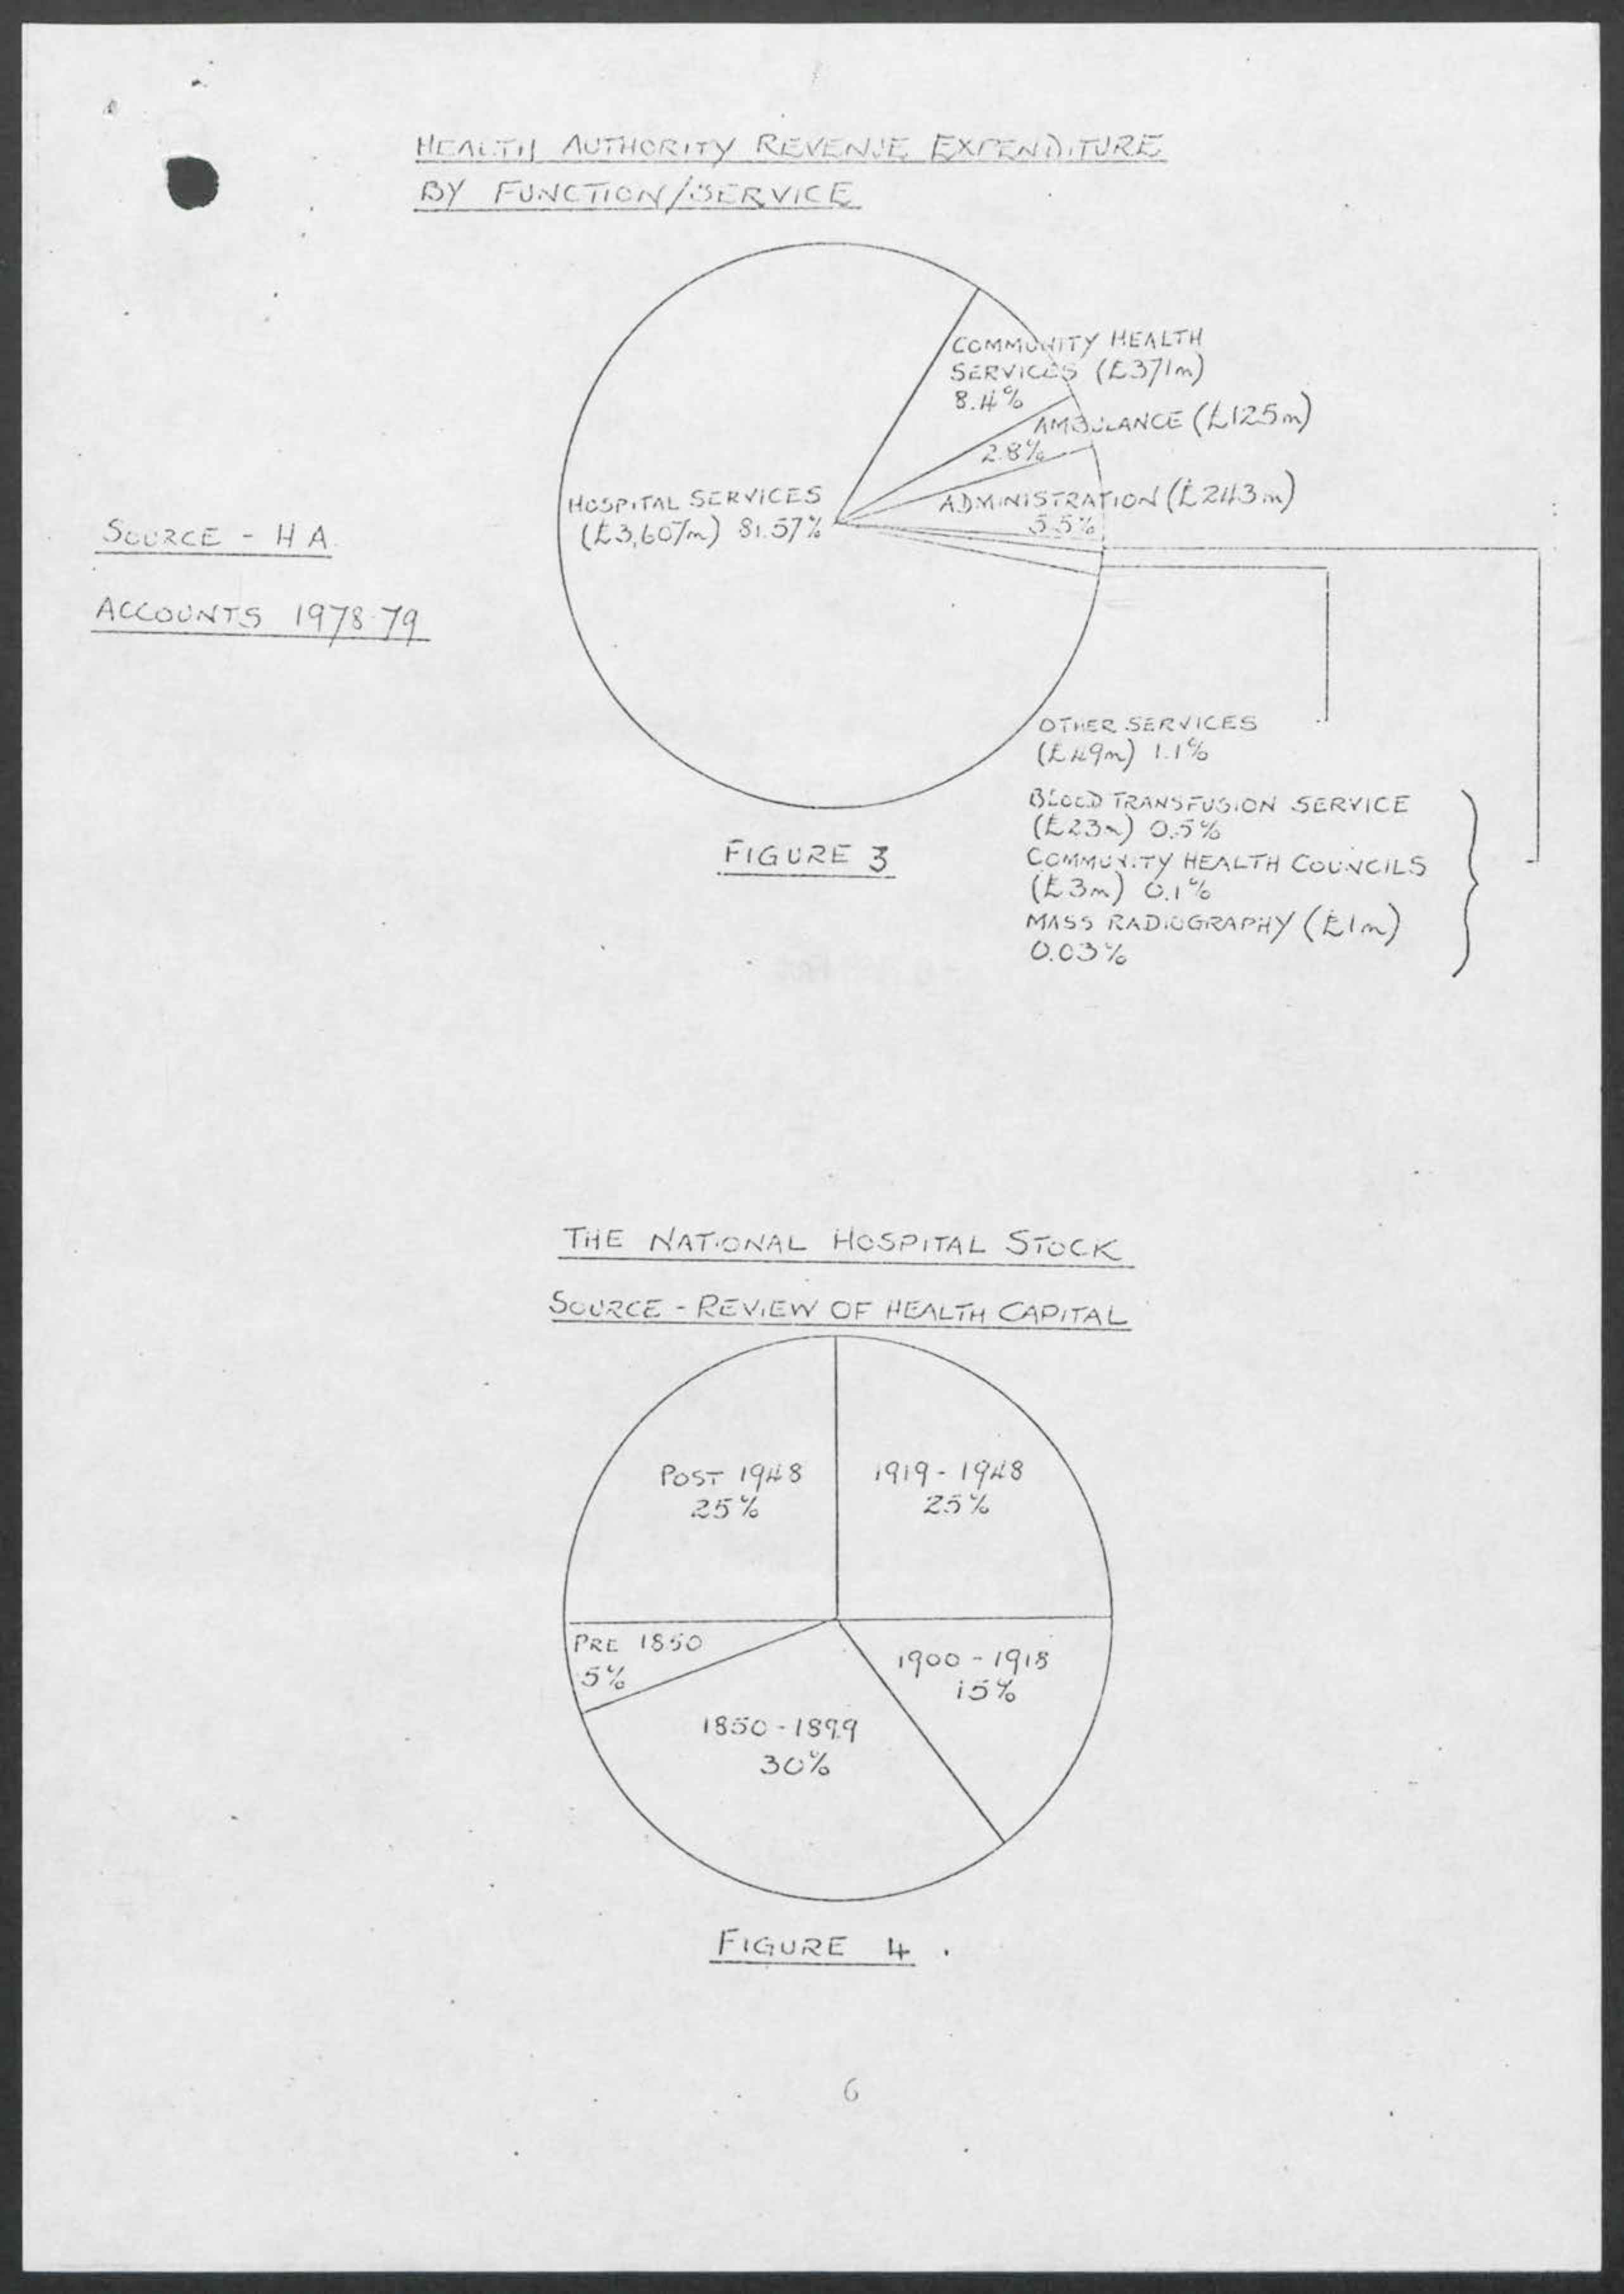 HEALTH AUTHORITY REVENUE EXPENDITURE
BY FUNCTION/SERVICE
COMMUNITY HEALTH
SERVICES (£371m)
8.4%
AMBULANCE (£125m)
2.8%
HOSPITAL SERVICES
(£3,607m) 81.57%
ADMINISTRATION (£243m)
5.5%
SOURCE - HA
ACCOUNTS 1978-79
OTHER SERVICES
(£49m) 1.1%
BLOOD TRANSFUSION SERVICE
(£23m) 0.5%
COMMUNITY HEALTH COUNCILS
(£3m) 0.1%
MASS RADIOGRAPHY (£1m)
0.03%
FIGURE 3
THE NATIONAL HOSPITAL STOCK
SOURCE - REVIEW OF HEALTH CAPITAL
POST 1948
25%
1919 - 1948
25%
PRE 1850
5%
1900 - 1918
15%
1850 - 1899
30%
FIGURE 4.
6